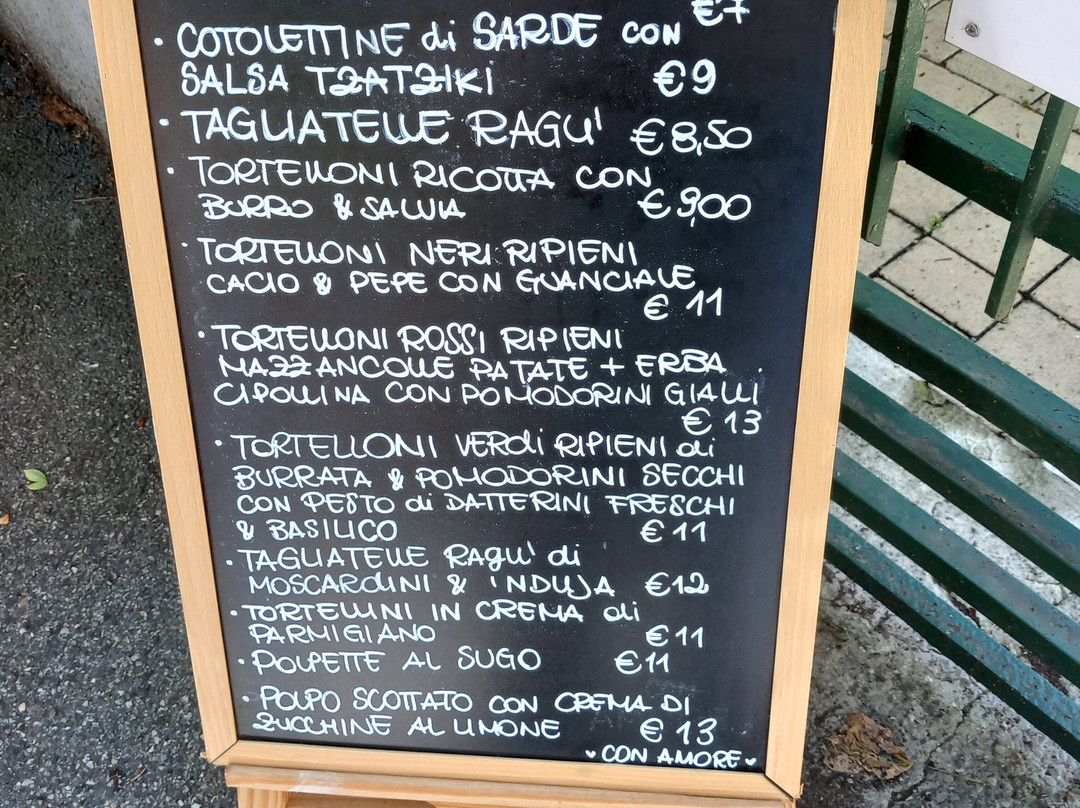 €7
• COTOLETTINE di SARDE CON
SALSA TZATZIKI €9
• TAGLIATELLE RAGU' €8,50
• TORTELLONI RICOTTA CON
BURRO & SALVIA €9,00
• TORTELLONI NERI RIPIENI
CACIO & PEPE CON GUANCIALE
€ 11
• TORTELLONI ROSSI RIPIENI
MAZZANCOLLE PATATE + ERBA
CIPOLLINA CON POMODORINI GIALLI
€ 13
• TORTELLONI VERdi RIPIENI di
BURRATA & POMODORINI SECCHI
CON PESTO di DATTERINI FRESCHI
& BASILICO € 11
• TAGLIATELLE RAGU' di
MOSCARDINI & 'NDUJA €12
• TORTELLINI IN CREMA di
PARMIGIANO €11
• POLPETTE AL SUGO €11
• POLPO SCOTTATO CON CREMA DI
ZUCCHINE AL LIMONE € 13
♥ CON AMORE ♥